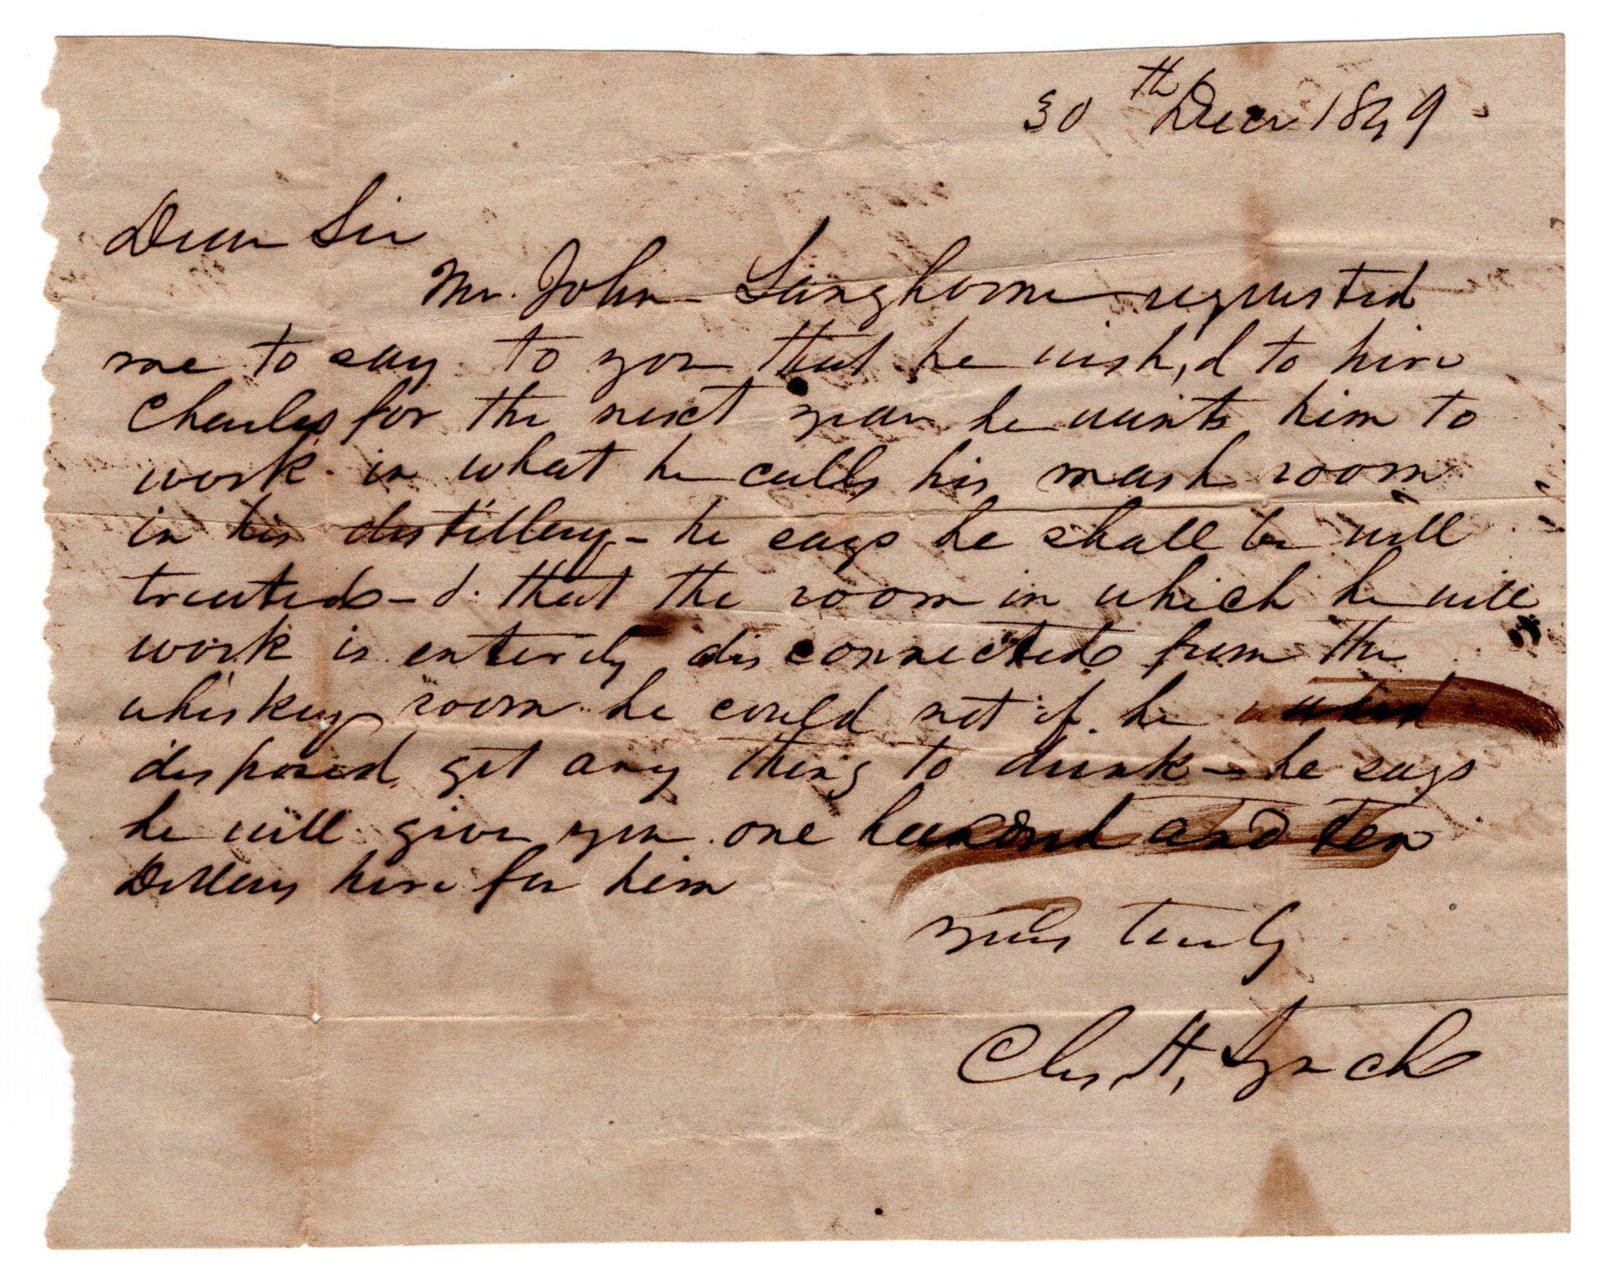 30th Decr 1849
Dear Sir
Mr. John Langhorne requested
me to say to you that he wish,d to hire
Charles for the next year he wants him to
work in what he calls his mash room
in his distillery - he says he shall be well
treated - & that the room in which he will
work is entirely disconnected from the
whiskey room he could not if he
disposed get any thing to drink - he says
he will give you one hundred and ten
Dollars hire for him
Yours truly
Chs. H. Lynch